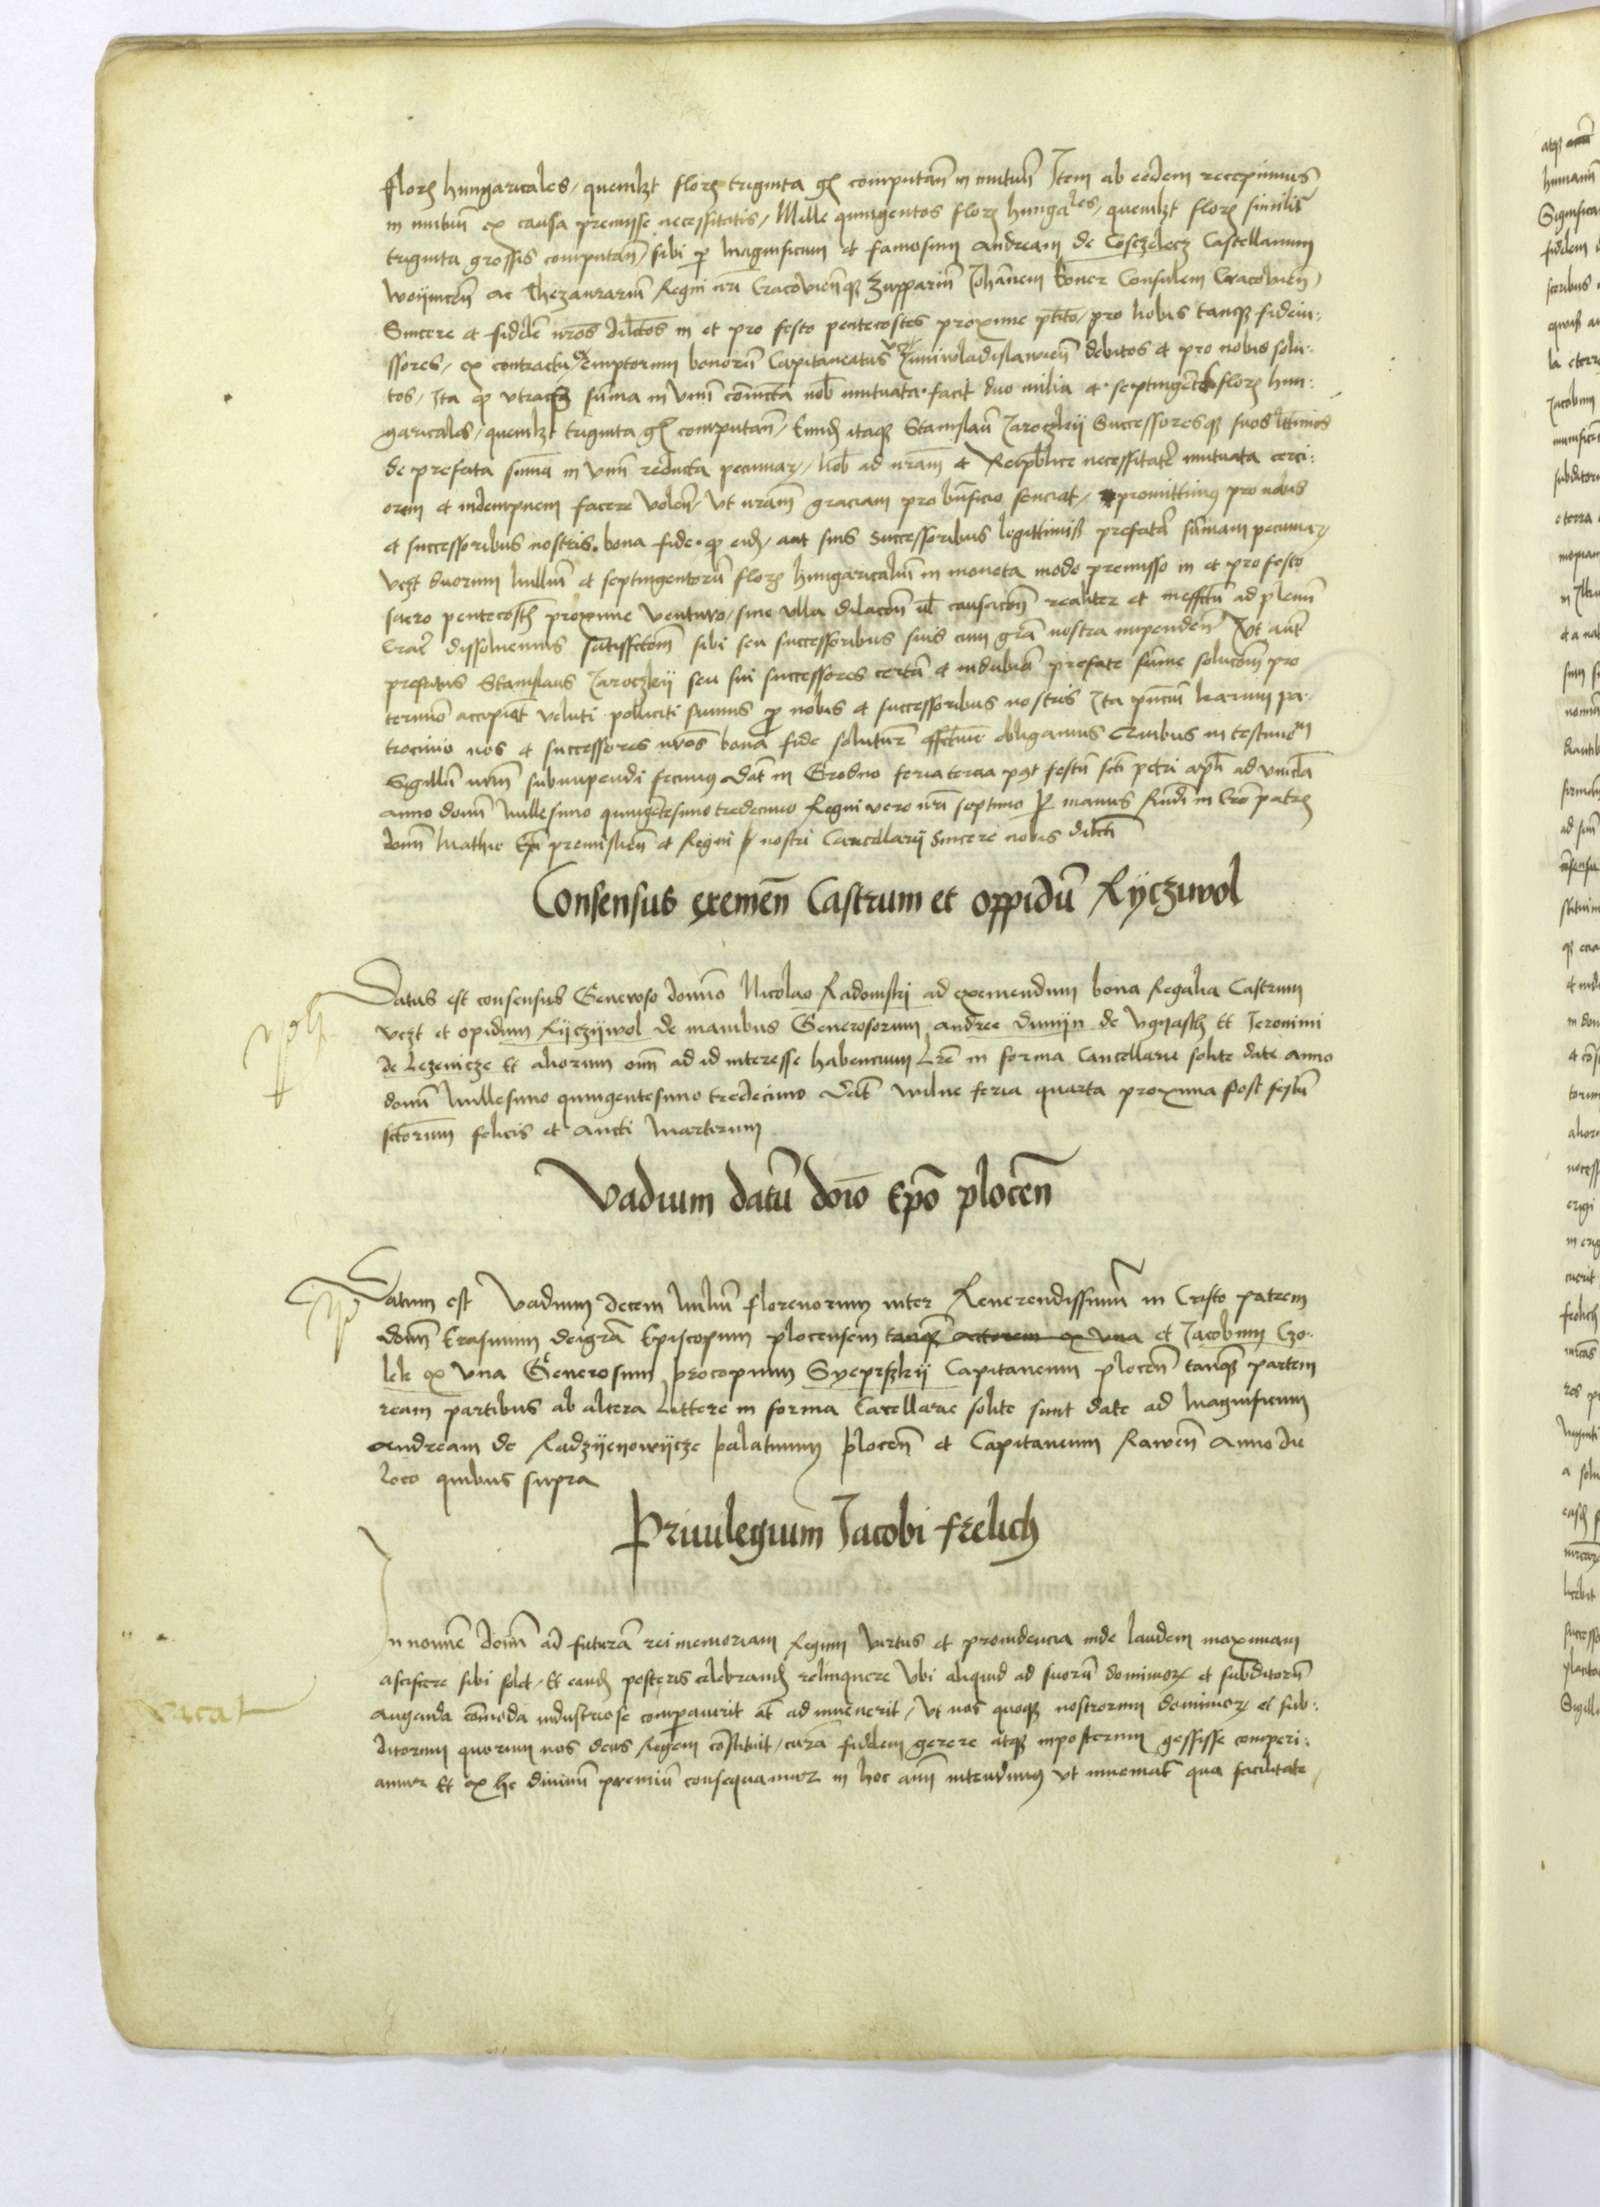 florẽ hungaricales, quemlzt florẽ triginta gſ computañ in mutuũ Item ab eodem recepimus
in mutuũ ex causa premisse necessitatis, Mille quingentos florẽ hungales, quemlzt florẽ similiter
triginta grossis computañ, sibi p magnificum et famosum andream de Cosczelecz Castellanum
woijniceñ ac Thezaurariũ Regni nri Cracovieñqз Zupparium Johañem Boner Consulem Cracovieñ,
Sincere et fidelẽ nros dilctos in et pro festo pentecostes proxime pterito, pro nobis tanqз fideiu-
ssores, ex contractu exemptorum bonorũ Capitaneatus Juniwladislavieñ debitos et pro nobis solu-
tos, Ita qз utraqз suma in vnũ coniuncta nob mutuata facit duo milia et septingetos florẽ hun-
garicales, quemlzt triginta gſ computañ, Eundẽ itaqз Stanislaũ Jaroczkij Successoresqз suos lttimos
de prefata sumã in vnũ redacta pecuniarẽ, nob ad nram et Reipublice necessitatẽ mutuata cerci-
orem et indempnem facere volen, Vt nram graciam pro bñficio senciat, promittimus pro nobis
et successoribus nostris bona fide qз eidẽ, aut suis successoribus legittimis prefatã sumam pecuniarẽ
vczt duorum milliũ et septingentorũ florẽ hungaricaliũ in moneta modo premisso in et pro festo
sacro pentecostẽ proxime venturo, sine vlla dilacõñ vl causacõñ realiter et in effctũ ad plenũ
dissoluemus satisfctom sibi seu successoribus suis cum grã nostra impenden Vt aut
prefatus Stanislaus Jaroczkij seu sui successores certã et indubiã prefate sume solucõm pro
termino accipiat veluti polliciti sumus p nobis et successoribus nostris Ita harum pa-
trocinio nos et successores nros bona fide soluturẽ effctiue obligamus Quibus in testimoẽm
Sigillũ nrm subimpendi fecimus Dat in Grodno feria tercia post festũ scti petri apli ad vincla
anno domi Millesimo quingetesimo tredecimo Regni vero nri septimo p manus Rndi in Cro patrẽ
domi Mathie Epi premislieñ et Regni nostri Cancellarij Sincere nobis dilcti
Consensus exemeñ Castrum et oppidũ Rÿczuwol
Datus est consensus Generoso domino Nicolao Radomski ad exemendum bona Regalia Castrum
vczt et opidum Rijczijwol de manibus Generosorum andree Dunijn de Vgyasth Et Jeronimi
de Lezenicze Et aliorum oim ad id interesse habencium Lrẽ in forma Cancellarie solite date anno
domi Millesimo quingentesimo tredecimo Datẽ wilne feria quarta proxima post festũ
sctorum felicis et aucti Martirum
Vadium datũ doio Epo ploceñ
Datum est Vadium decem miliũ florenorum inter Reuerendissimũ in Cristo patrem
domi Erasmum deigrã Episcopum plocensem tanqз actorem ex vna et Jacobum Czo-
lek ex vna Generosum procopium Syeprskij Capitaneum ploceñ tanqз partem
ream partibus ab altera Littere in forma Cacellarie solite sunt date ad Magnificum
Andream de Radzijenowijcze palatinum ploceñ et Capitaneum Raweñ Anno die
loco quibus supra
Priuilegium Jacobi frelich
vicat
In nomie domi ad futurã rei memoriam Regum virtus et prouidencia inde laudem maximam
asciscere sibi solet, Et eandẽ posteris celebrandẽ relinquere Vbi aliquid ad suorũ dominiorẽ et subditorũ
augenda cõmoda industriose compauerit at ad inuenerit, Vt nos quoqз nostrorum dominiorẽ et sub-
ditorum quorum nos deus Regem costituit, curã fidelem gerere atqз inposterum gessisse comperi-
amur Et ex hc diuinũ premiũ consequamur in hoc intendimus vt inueniat qua facilitate,